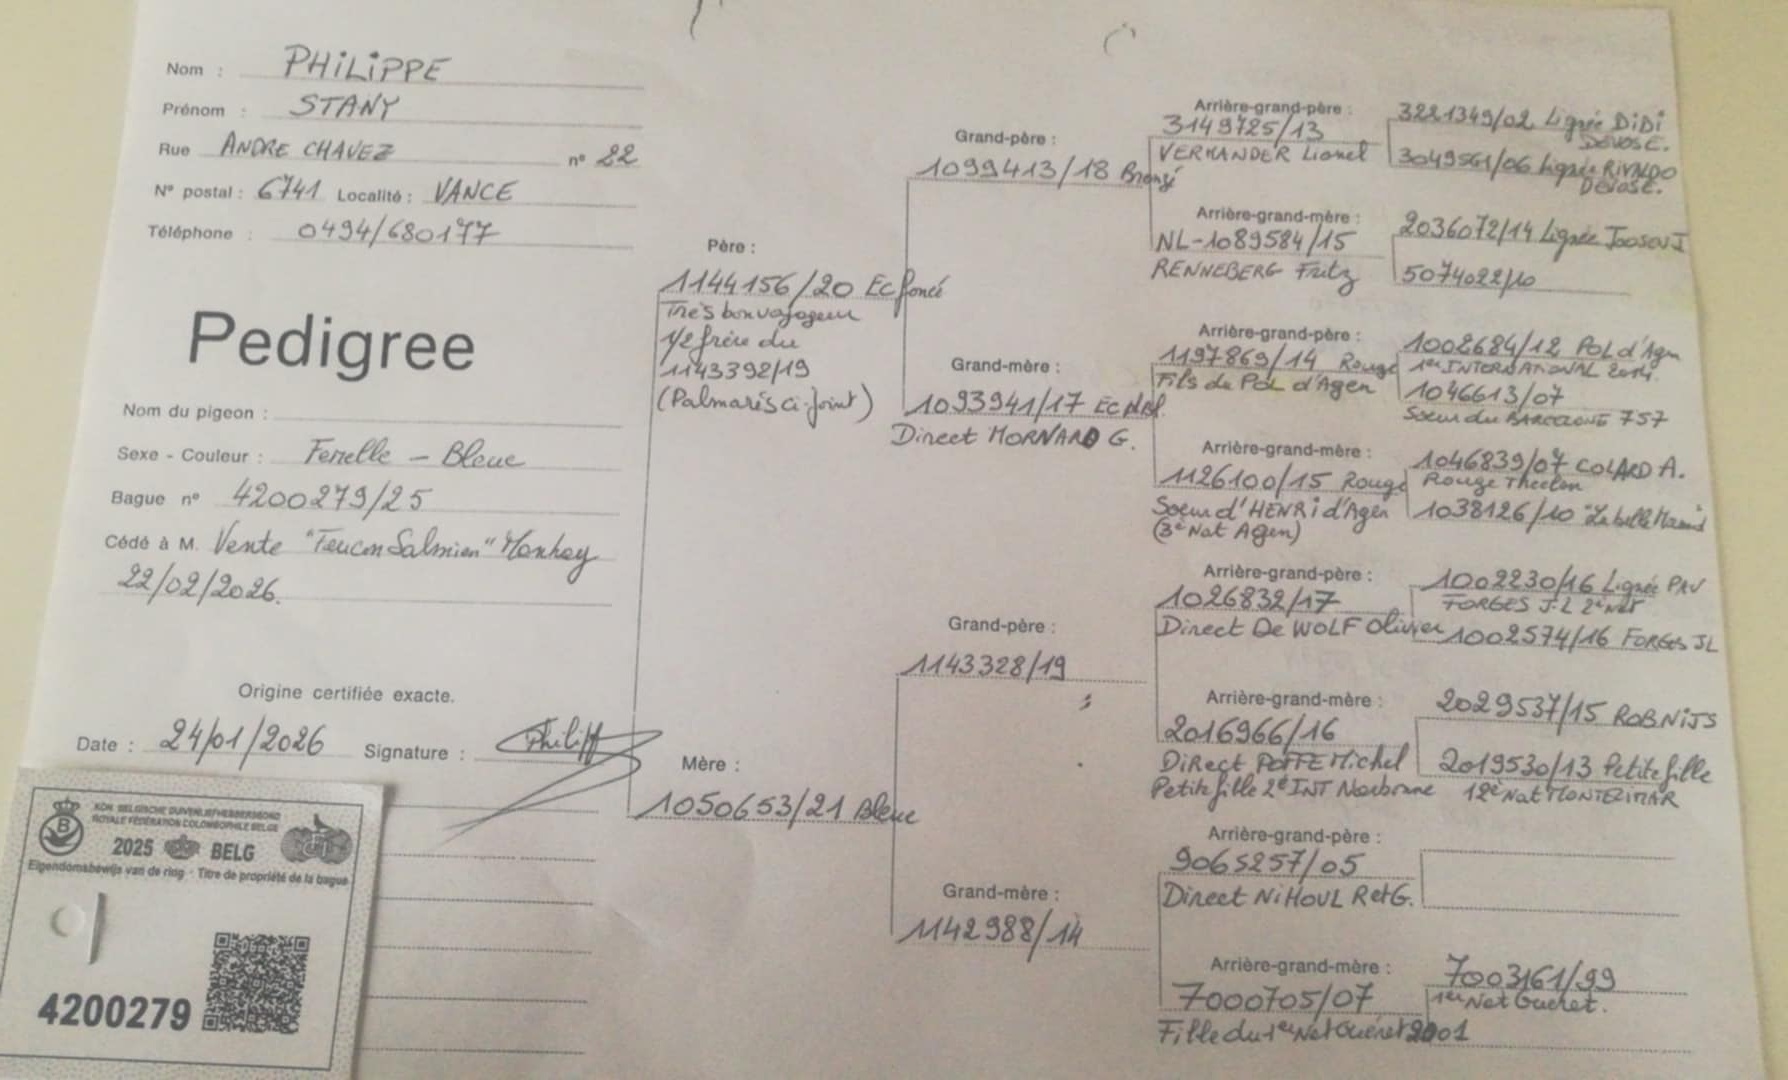 Nom : PHILIPPE
Prénom : STANY
Rue ANDRE CHAVEZ n° 22
N° postal : 6741 Localité : VANCE
Téléphone : 0494/680177
Pedigree
Nom du pigeon :
Sexe - Couleur : Femelle - Bleue
Bague n° 4200279/25
Cédé à M. Vente "Faucon Salmien" Manhay
22/02/2026.
Origine certifiée exacte.
Date : 24/01/2026 Signature :
KON. BELGISCHE DUIVENLIEFHEBBERSBOND
ROYALE FÉDÉRATION COLOMBOPHILE BELGE
2025 BELG
Eigendomsbewijs van de ring - Titre de propriété de la bague
4200279
Père :
1144156/20 Ec foncé
Très bon voyageur
1/2 frère du
1143392/19
(Palmarès ci-joint)
Mère :
1050653/21 Bleue
Grand-père :
1099413/18 Bronzé
Grand-mère :
1093941/17 Ec
Direct MORNARD G.
Grand-père :
1143328/19
Grand-mère :
1142988/14
Arrière-grand-père :
3149725/13
VERMANDER Lionel
Arrière-grand-mère :
NL-1089584/15
RENNEBERG Fritz
Arrière-grand-père :
1197869/14 Rouge
Fils du POL d'Agen
Arrière-grand-mère :
1126100/15 Rouge
Soeur d'HENRi d'Agen
(3e Nat Agen)
Arrière-grand-père :
1026832/17
Direct De WOLF Olivier
Arrière-grand-mère :
2016966/16
DiRect POFFE Michel
Petite fille 2e INT Narbonne
Arrière-grand-père :
9065257/05
Direct NiHOUL R et G.
Arrière-grand-mère :
7000705/07
Fille du 1er Nat Guéret 2001
3221349/02 Lignée DiDi
DEVOS E.
3049561/06 Lignée RIVALDO
DEVOS E.
2036072/14 Lignée
5074022/10
1002684/12 POL d'Agen
1er INTERNATIONAL 2014.
1046613/07
Soeur du BARCELONE 757
1046839/07 COLARD A.
Rouge
1038126/10
1002230/16 Lignée
FORGES J.L 2e Nat
1002574/16 FORGES JL
2029537/15 ROB NiJS
2019530/13 Petite fille
12e Nat MONTELIMAR
7003161/99
1er Nat Guéret.